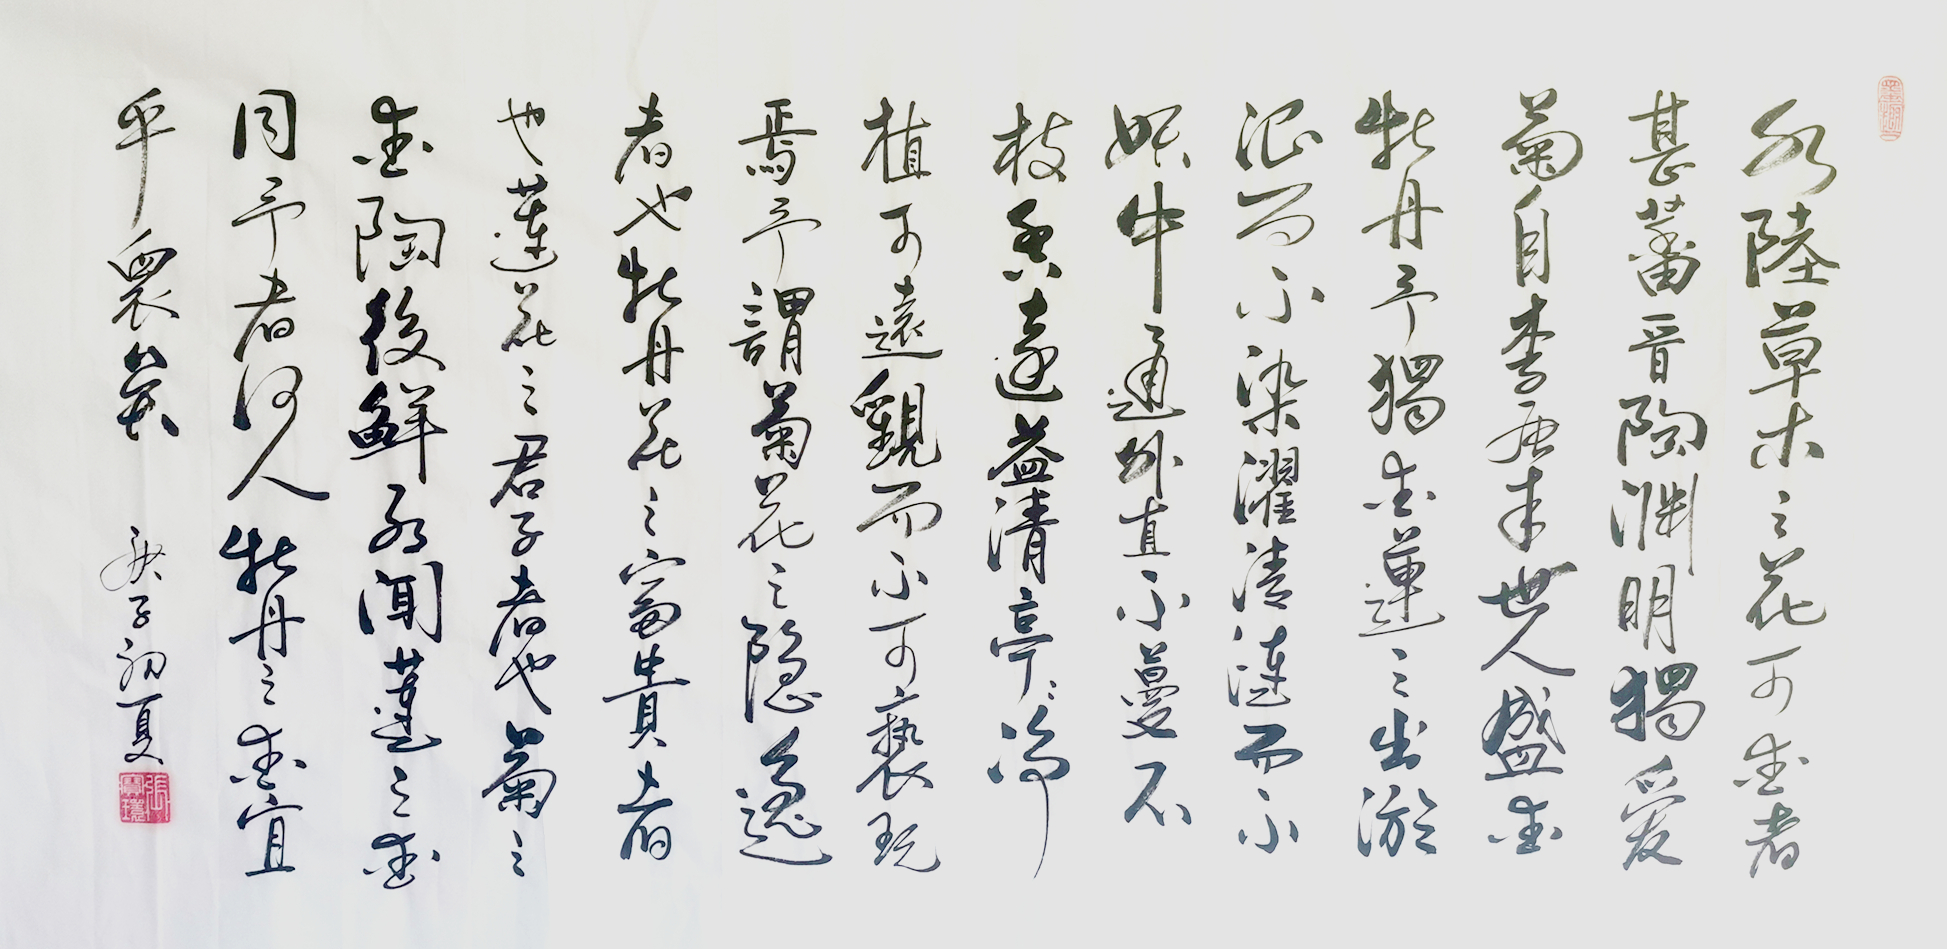 水陸草木之花可愛者
甚蕃晋陶淵明獨愛
菊自李唐来世人盛愛
牡丹予獨愛蓮之出淤
泥而不染濯清漣而不
妖中通外直不蔓不
枝香遠益清亭〻净
植可遠觀而不可褻玩
焉予謂菊花之隐逸
者也牡丹花之富貴者
也蓮花之君子者也菊之
愛陶後鮮有聞蓮之愛
同予者何人牡丹之愛宜
乎衆矣 庚子初夏